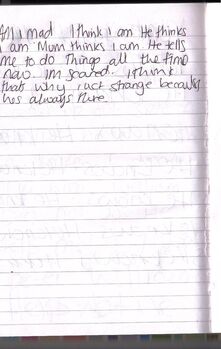 Am I mad I think I am He thinks
I am Mum thinks I am He tells
me to do things all the time
now. I'm scared. I think
thats why I act strange because
hes always there.